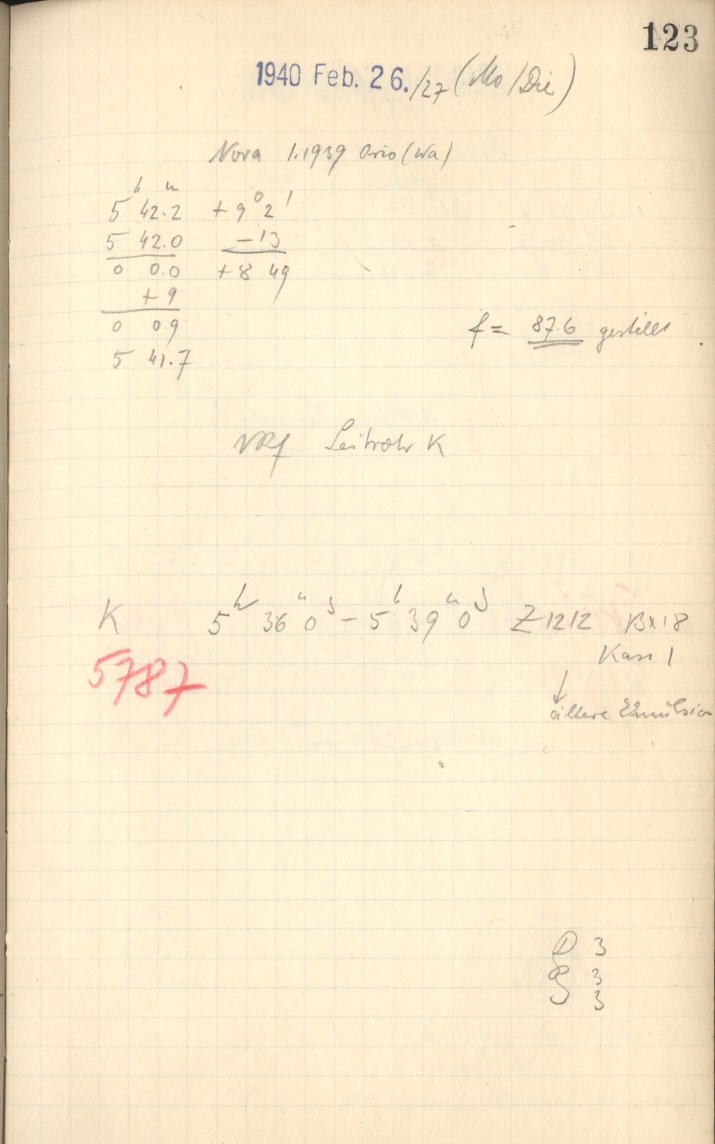 123
1940 Feb. 26./27 (Mo/Die)
Nova 1.1939 Orio (Wa)
h m
5 42.2 +9° 2'
5 42.0 -13
0 0.0 +8 49
+9
0 0.9
5 41.7
f = 87.6 gestellt
Leitrohr K
K 5h 36m 0s - 5h 39m 0s Z 1212 13x18
Kass 1
5787
↓
ältere Emulsion
D 3
3
S 3